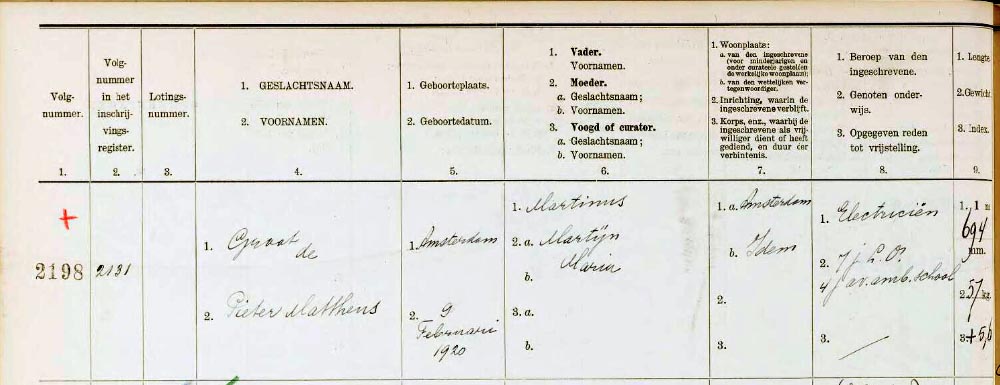 Volg-
nummer.
1.
Volg-
nummer
in het
inschrij-
vings-
register.
2.
Lotings-
nummer.
3.
1. GESLACHTSNAAM.
2. VOORNAMEN.
4.
1. Geboorteplaats.
2. Geboortedatum.
5.
1. Vader.
Voornamen.
2. Moeder.
a. Geslachtsnaam;
b. Voornamen.
3. Voogd of curator.
a. Geslachtsnaam;
b. Voornamen.
6.
1. Woonplaats:
a. van den ingeschrevene
(voor minderjarigen en
onder curateele gestelden
de werkelijke woonplaats);
b. van den wettelijken ver-
tegenwoordiger.
2. Inrichting, waarin de
ingeschrevene verblijft.
3. Korps, enz., waarbij de
ingeschrevene als vrij-
williger dient of heeft
gediend, en duur der
verbintenis.
7.
1. Beroep van den
ingeschrevene.
2. Genoten onder-
wijs.
3. Opgegeven reden
tot vrijstelling.
8.
1. Lengte
2. Gewicht.
3. Index.
9.
+
2198
2131
1. Groot
de
2. Pieter Mattheus
1. Amsterdam
2. 9
Februari
1920
1. Martinus
2. a. Martijn
b. Maria
3. a.
b.
1. a. Amsterdam
b. Idem
2.
3.
1. Electriciën
2. 7 j. L. O.
4 j av. amb. school
3. —
1. 1 m
694
mm.
2. 57 kg.
3. + 5,6